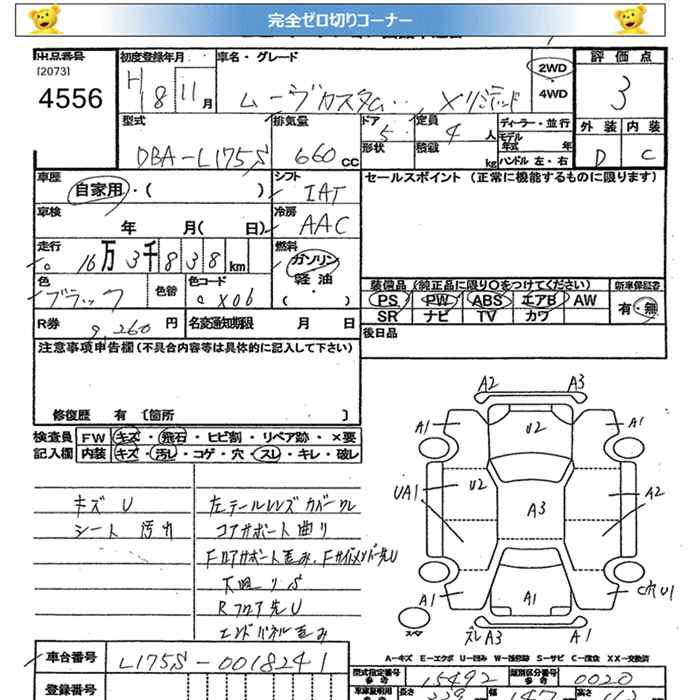 完全ゼロ切りコーナー
出品番号 初度登録年月 車名・グレード 2WD 評価点
[2073] H 8 11 月 ムーブカスタム ・4WD 3
4556 外装 内装
型式 排気量 ドア 5 定員 4 人 ディーラー・並行 D C
DBA-L175S 660 cc 形状 積載 kg モデル年式 年
ハンドル 左・右
車歴 シフト セールスポイント (正常に機能するものに限ります)
自家用・( ) IAT
車検 冷房
年 月( 日) AAC
走行 燃料
16万3千838km ガソリン
色 色替 色コード 軽油 装備品 (純正品に限り○をつけてください) 新車保証書
ブラック X06 ・( ) PS PW ABS エアB AW 有・無
SR ナビ TV カワ
R券 9,260 円 名変通知期限 月 日 後日品
注意事項申告欄 (不具合内容等は具体的に記入して下さい)
修復歴 有 [箇所 ]
検査員 FW キズ・飛石・ヒビ割・リペア跡・×要
記入欄 内装 キズ・汚レ・コゲ・穴・スレ・キレ・破レ
キズ U 左テールレンズ カバーワレ
シート 汚れ コアサポート曲り
Fロアサポート歪み、Fサイドメンバー先U
下廻りS
Rフロア先U
エンドパネル歪み
A2 A3
A1 U2 A1
UA1 U2 A3 A2
A1 A1 U1
スペア ズレ A3 A1
A-キズ E-エクボ U-凹み W-波修跡 S-サビ C-腐食 XX-交換済
車台番号 L175S-0018241
型式指定番号 参考 15492 類別区分番号 参考 0020
登録番号 車検証明用 参考 長さ 339 幅 147 高さ